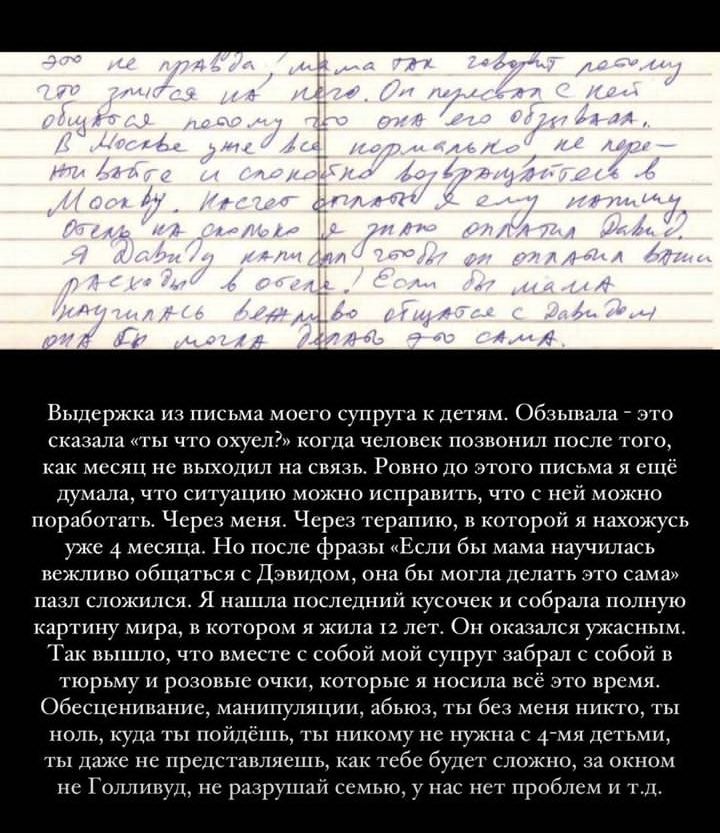 это не правда, мама так говорит потому
что злится на него. Он перестал с ней
общаться потому что она его обзывала.
В Москве уже все нормально, не пере-
живайте и спокойно возвращайтесь в
Москву. Насчет оплаты я ему напишу
Отель на сколько я знаю оплатил Давид.
Я Давиду написал чтобы он оплатил ваши
расходы в отеле! Если бы мама
научилась вежливо общатся с Давидом
она бы могла делать это сама.
Выдержка из письма моего супруга к детям. Обзывала - это
сказала «ты что охуел?» когда человек позвонил после того,
как месяц не выходил на связь. Ровно до этого письма я ещё
думала, что ситуацию можно исправить, что с ней можно
поработать. Через меня. Через терапию, в которой я нахожусь
уже 4 месяца. Но после фразы «Если бы мама научилась
вежливо общаться с Дэвидом, она бы могла делать это сама»
пазл сложился. Я нашла последний кусочек и собрала полную
картину мира, в котором я жила 12 лет. Он оказался ужасным.
Так вышло, что вместе с собой мой супруг забрал с собой в
тюрьму и розовые очки, которые я носила всё это время.
Обесценивание, манипуляции, абьюз, ты без меня никто, ты
ноль, куда ты пойдёшь, ты никому не нужна с 4-мя детьми,
ты даже не представляешь, как тебе будет сложно, за окном
не Голливуд, не разрушай семью, у нас нет проблем и т.д.